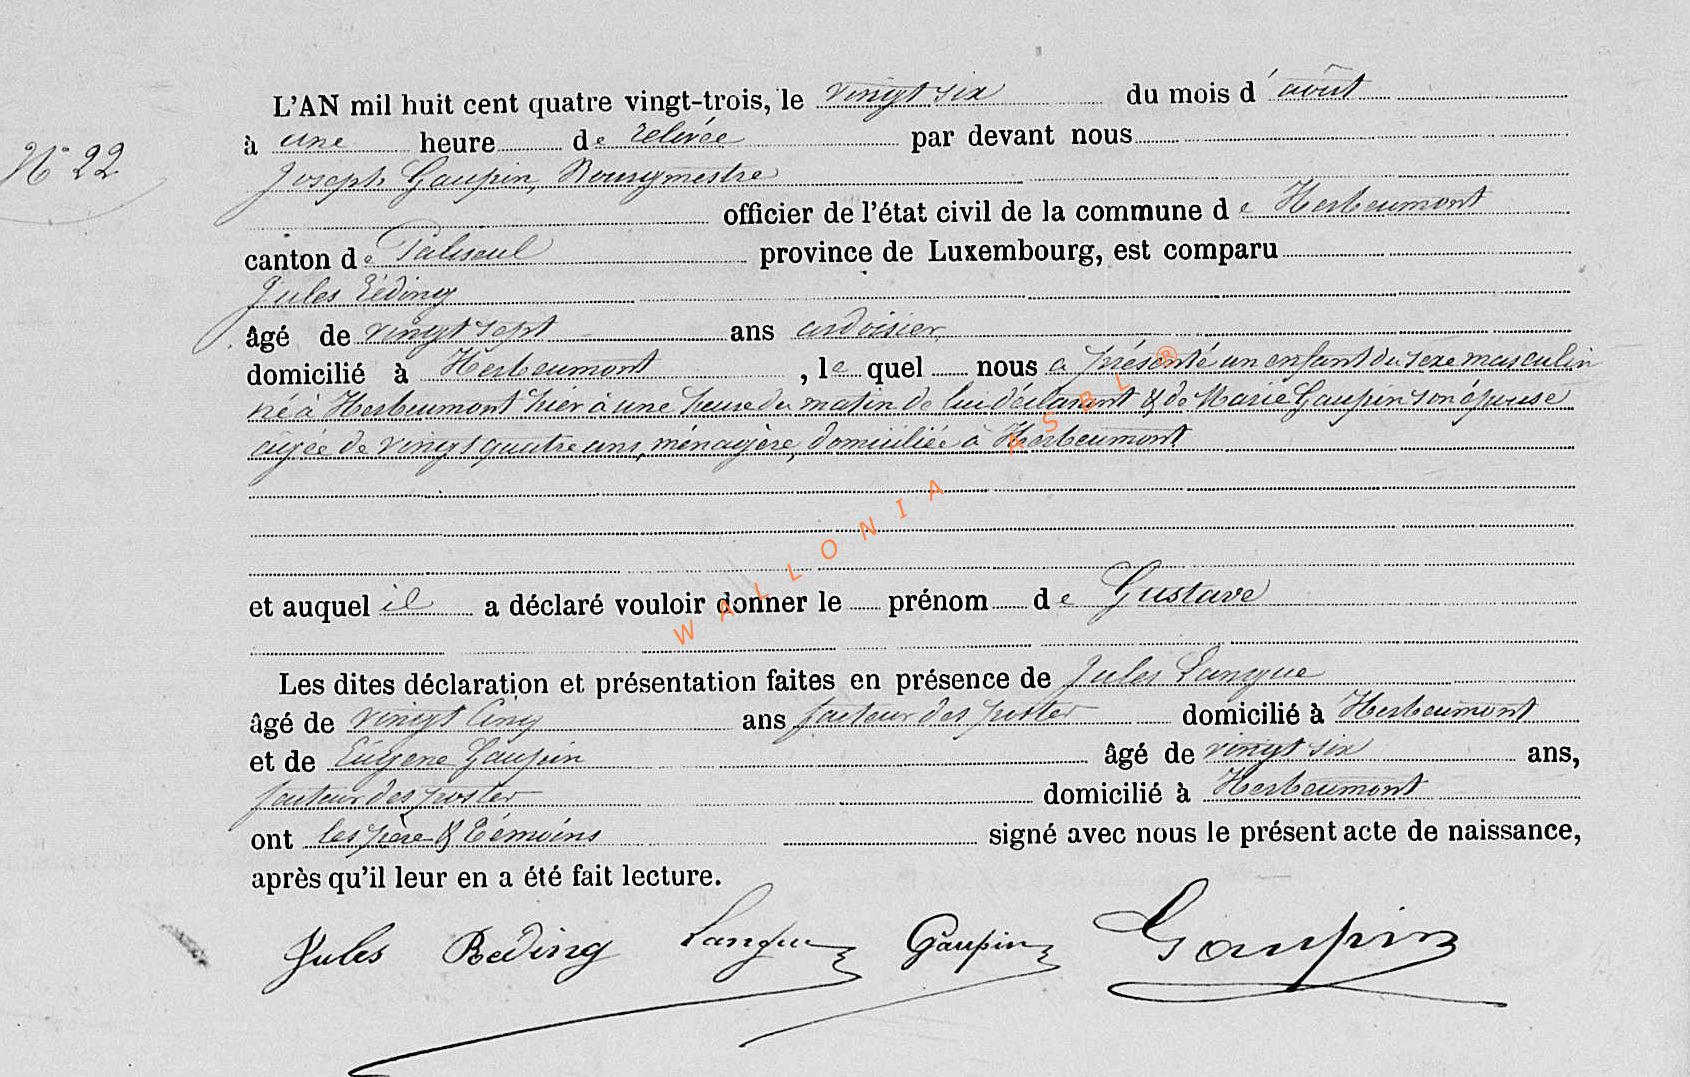 L'AN mil huit cent quatre vingt-trois, le vingt six du mois d'août
N° 22
à une heure de relevée par devant nous
Joseph Gaupin, Bourgmestre
officier de l'état civil de la commune de Herbeumont
canton de Paliseul province de Luxembourg, est comparu
Jules Réding
âgé de vingt sept ans ardoisier,
domicilié à Herbeumont, le quel nous a présenté un enfant du sexe masculin
né à Herbeumont hier à une heure du matin de lui déclarant & de Marie Gaupin son épouse
âgée de vingt quatre ans, ménagère, domiciliée à Herbeumont
et auquel il a déclaré vouloir donner le prénom de Gustave
Les dites déclaration et présentation faites en présence de Jules Langue
âgé de vingt cinq ans facteur des postes domicilié à Herbeumont
et de Eugène Gaupin âgé de vingt six ans,
facteur des postes domicilié à Herbeumont
ont les père & témoins signé avec nous le présent acte de naissance,
après qu'il leur en a été fait lecture.
Jules Reding Langue Gaupin Gaupin
WALLONIA ASBL ®